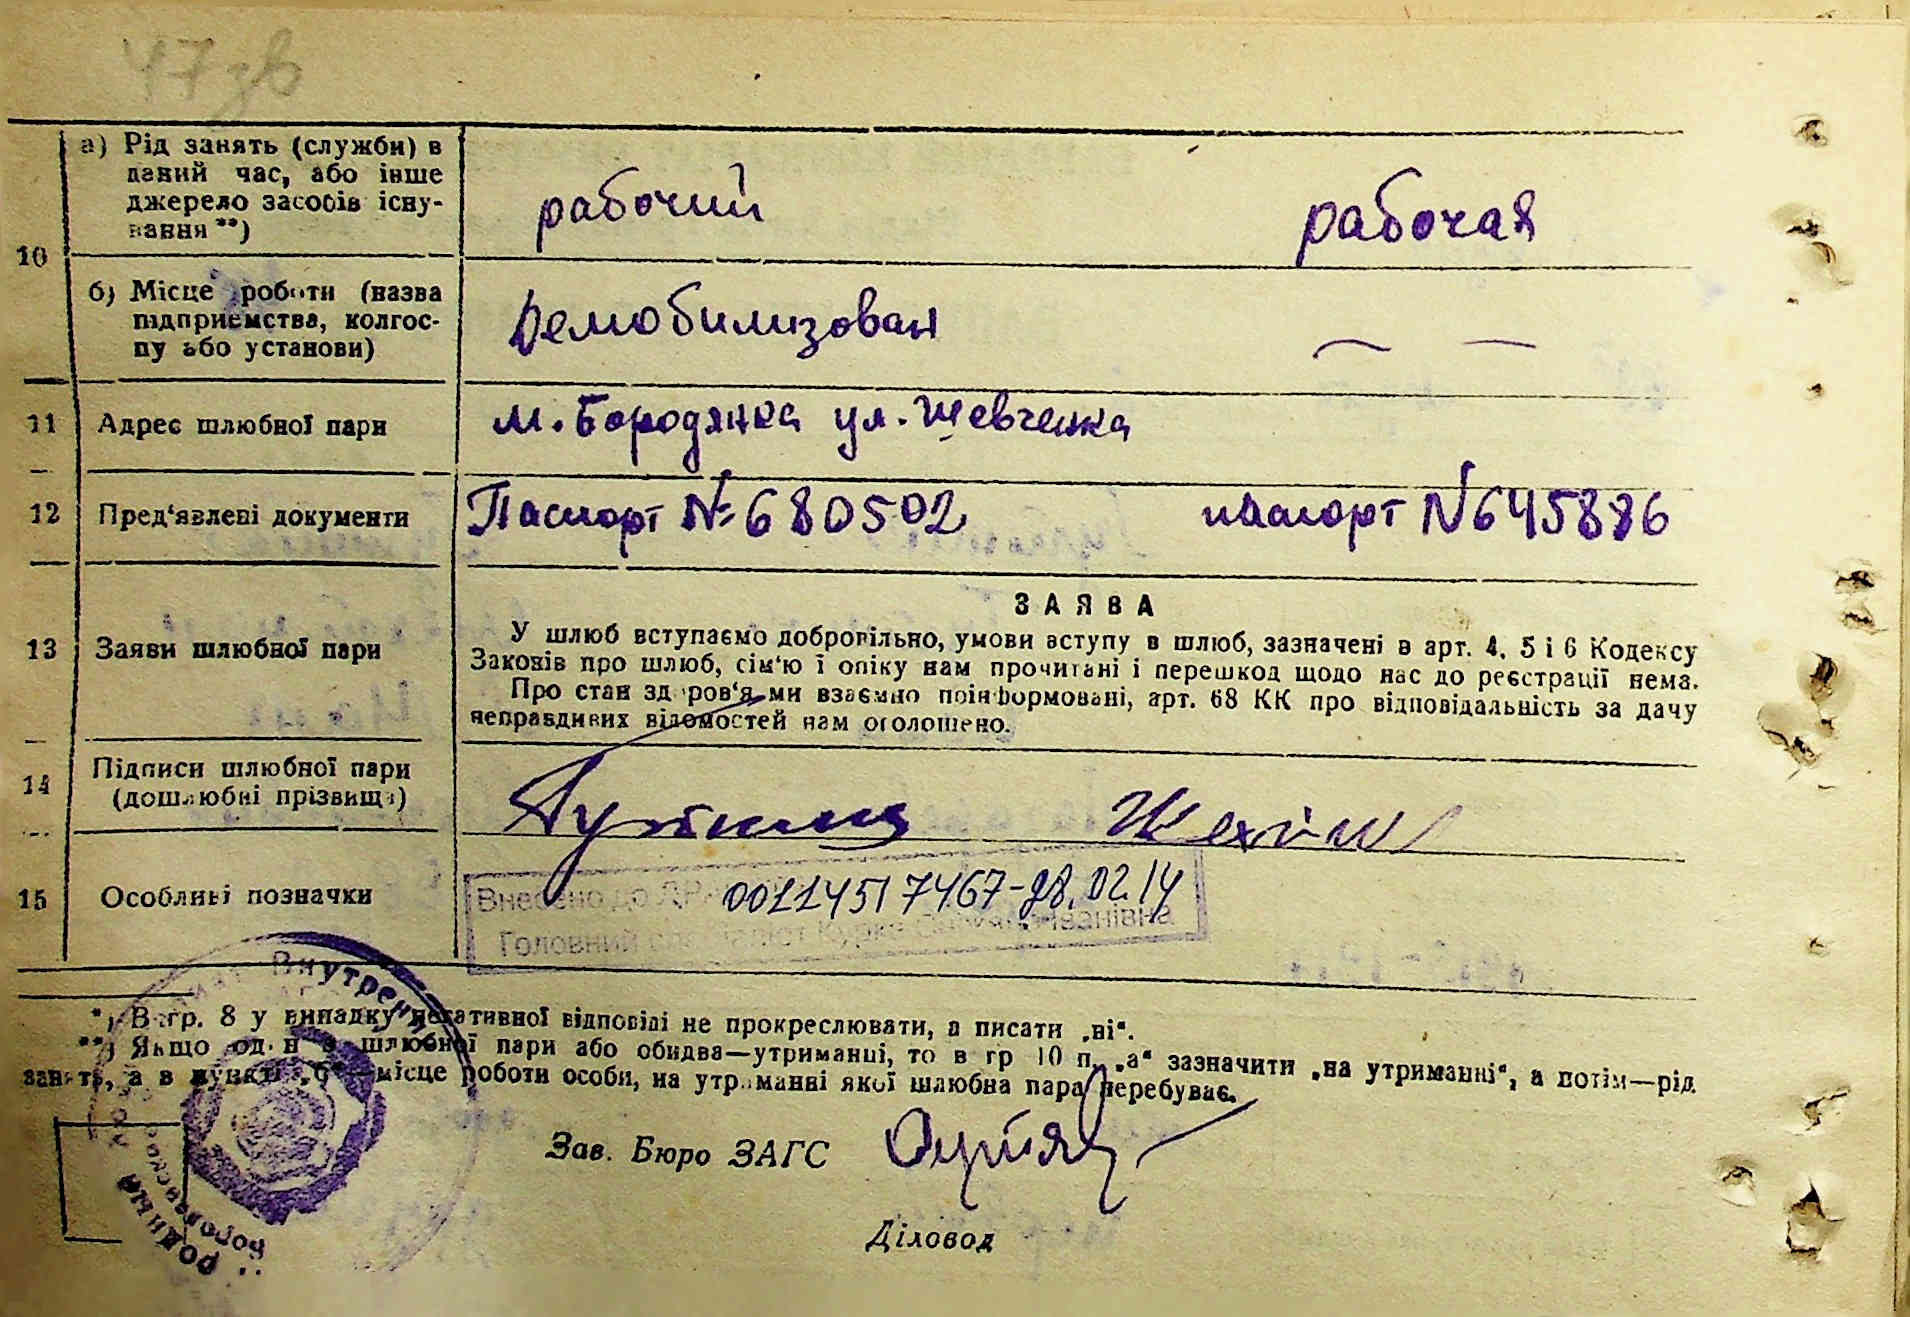 47 зв
а) Рід занять (служби) в
даний час, або інше
джерело засобів існу-
вання **)
рабочий рабочая
10
б) Місце роботи (назва
підприємства, колгос-
пу або установи)
Демобилизован — —
11 Адрес шлюбної пари м. Бородянка ул. Шевченка
12 Пред'явлені документи Паспорт № 680502 паспорт N 645886
ЗАЯВА
13 Заяви шлюбної пари
У шлюб вступаємо добровільно, умови вступу в шлюб, зазначені в арт. 4, 5 і 6 Кодексу
Законів про шлюб, сім'ю і опіку нам прочитані і перешкод щодо нас до реєстрації нема.
Про стан здоров'я ми взаємно поінформовані, арт. 68 КК про відповідальність за дачу
неправдивих відомостей нам оголошено.
14 Підписи шлюбної пари
(дошлюбні прізвища)
15 Особливі позначки
Внесено до 00114517467-28.02.14
Головний спеціаліст Іванівна
Внутрен
*) В гр. 8 у випадку негативної відповіді не прокреслювати, а писати „ні“.
**) Якщо один з шлюбної пари або обидва—утриманці, то в гр 10 п. „а“ зазначити „на утриманні“, а потім—рід
занять, а в пункті „б“—місце роботи особи, на утриманні якої шлюбна пара перебуває.
Зав. Бюро ЗАГС
Діловод